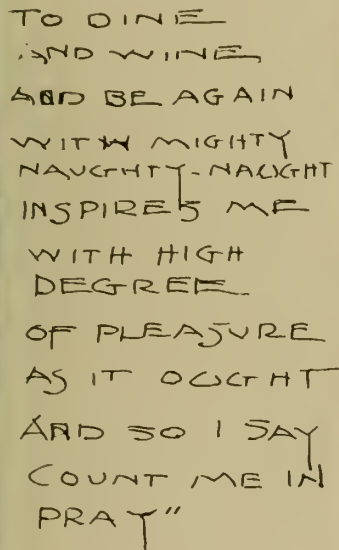 TO DINE
AND WINE
AND BE AGAIN
WITH MIGHTY
NAUGHTY-NAUGHT
INSPIRES ME
WITH HIGH
DEGREE
OF PLEASURE
AS IT OUGHT
AND SO I SAY
COUNT ME IN
PRAY"